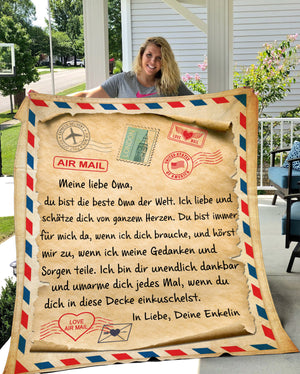 AIR MAIL
Meine liebe Oma,
du bist die beste Oma der Welt. Ich liebe und
schätze dich von ganzem Herzen. Du bist immer
für mich da, wenn ich dich brauche, und hörst
mir zu, wenn ich meine Gedanken und
Sorgen teile. Ich bin dir unendlich dankbar
und umarme dich jedes Mal, wenn du
dich in diese Decke einkuschelst.
In Liebe, Deine Enkelin
LOVE
AIR MAIL